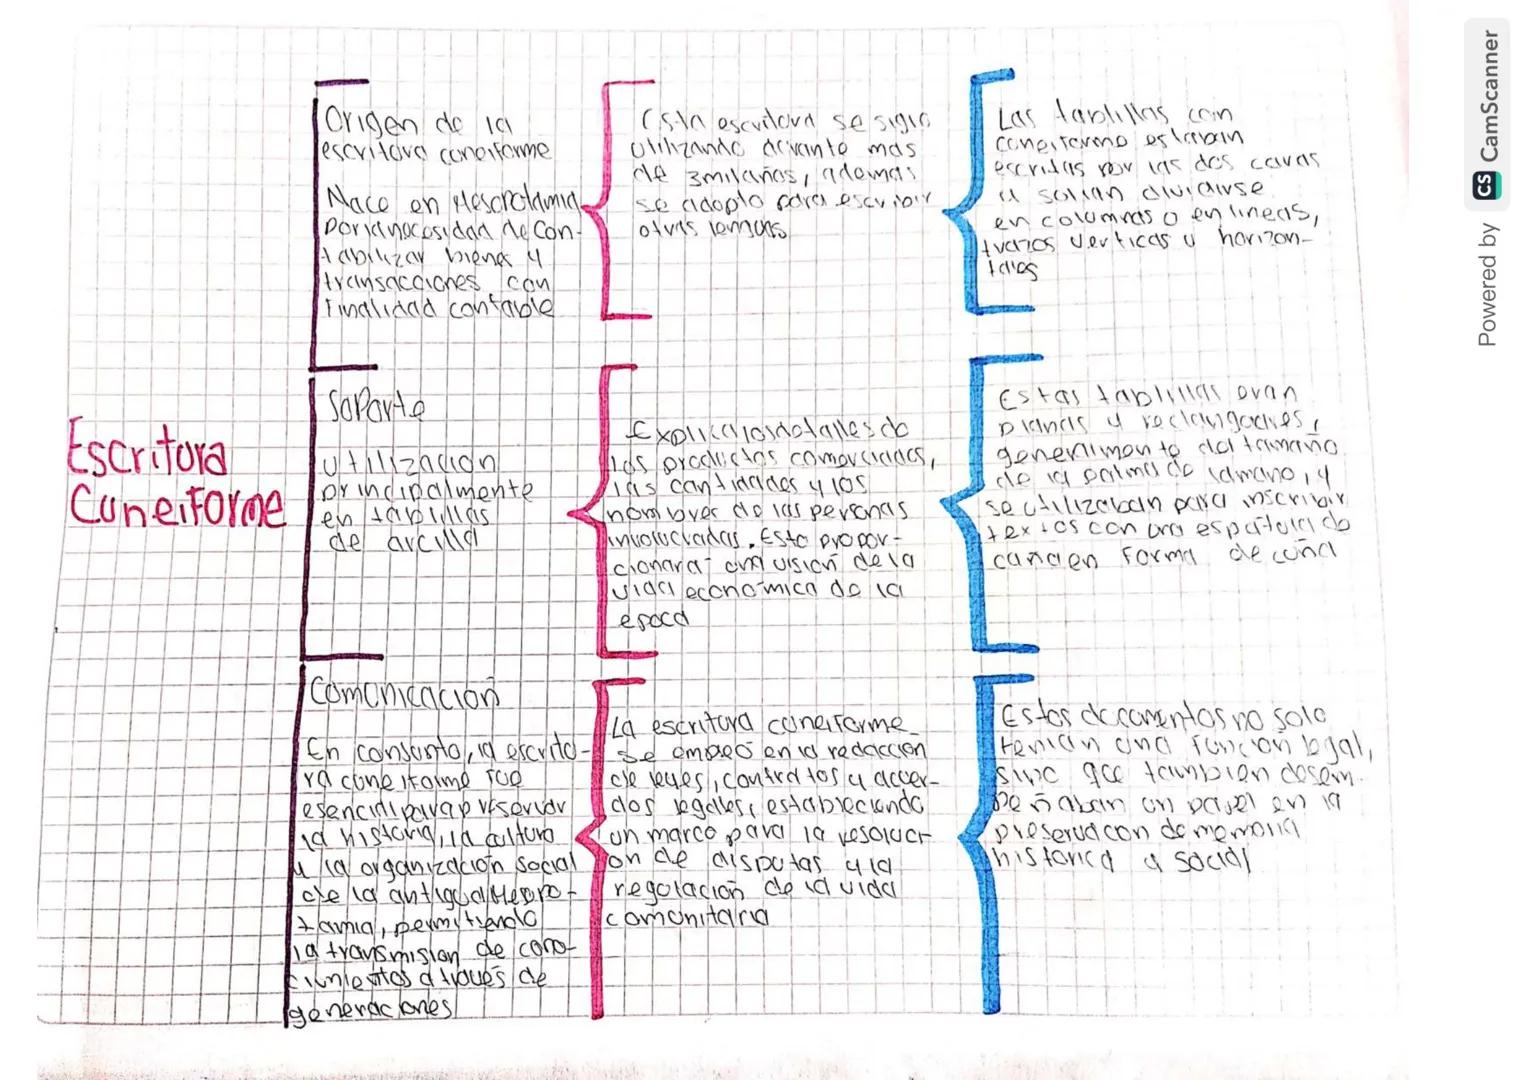 Escritura
Cuneiforme
Origen de la
escritura cuneiforme
Nace en Mesopotamia
por la necesidad de con-
tabilizar bienes y
transacciones con
finalidad contable
Esta escritura se siguio
utilizando durante mas
de 3 mil años, ademas
se adopto para escribir
otras lenguas
Las tablillas con
cuneiforme estaban
escritas por las dos caras
y solian dividirse
en columnas o en lineas,
trazos verticas y horizon-
tales
Soporte
utilización
principalmente
en tablillas
de arcilla
Explica los detalles de
los productos comerciados,
las cantidades y los
nombres de las personas
involucradas. Esto propor-
cionara una visión de la
vida económica de la
epoca
Estas tablillas eran
planas y rectangulares,
generalmente del tamaño
de la palma de la mano, y
se utilizaban para inscribir
textos con una espatula de
caña en forma de cuña
Comunicación
En conjunto, la escritu-
ra cuneiforme fue
esencial para preservar
la historia, la cultura
y la organización social
de la antigua
tamia, permitiendo
la transmision de cono-
cimientos a través de
generaciones
La escritura cuneiforme
se empleó en la redacción
de leyes, contratos y acuer-
dos legales, estableciendo
un marco para la resoluci-
on de disputas y la
regulación de la vida
comunitaria
Estos documentos no solo
tenian una función legal,
sino que tambien desem-
peñaban un papel en la
preservacon de memoria
historica y social
Powered by CS CamScanner